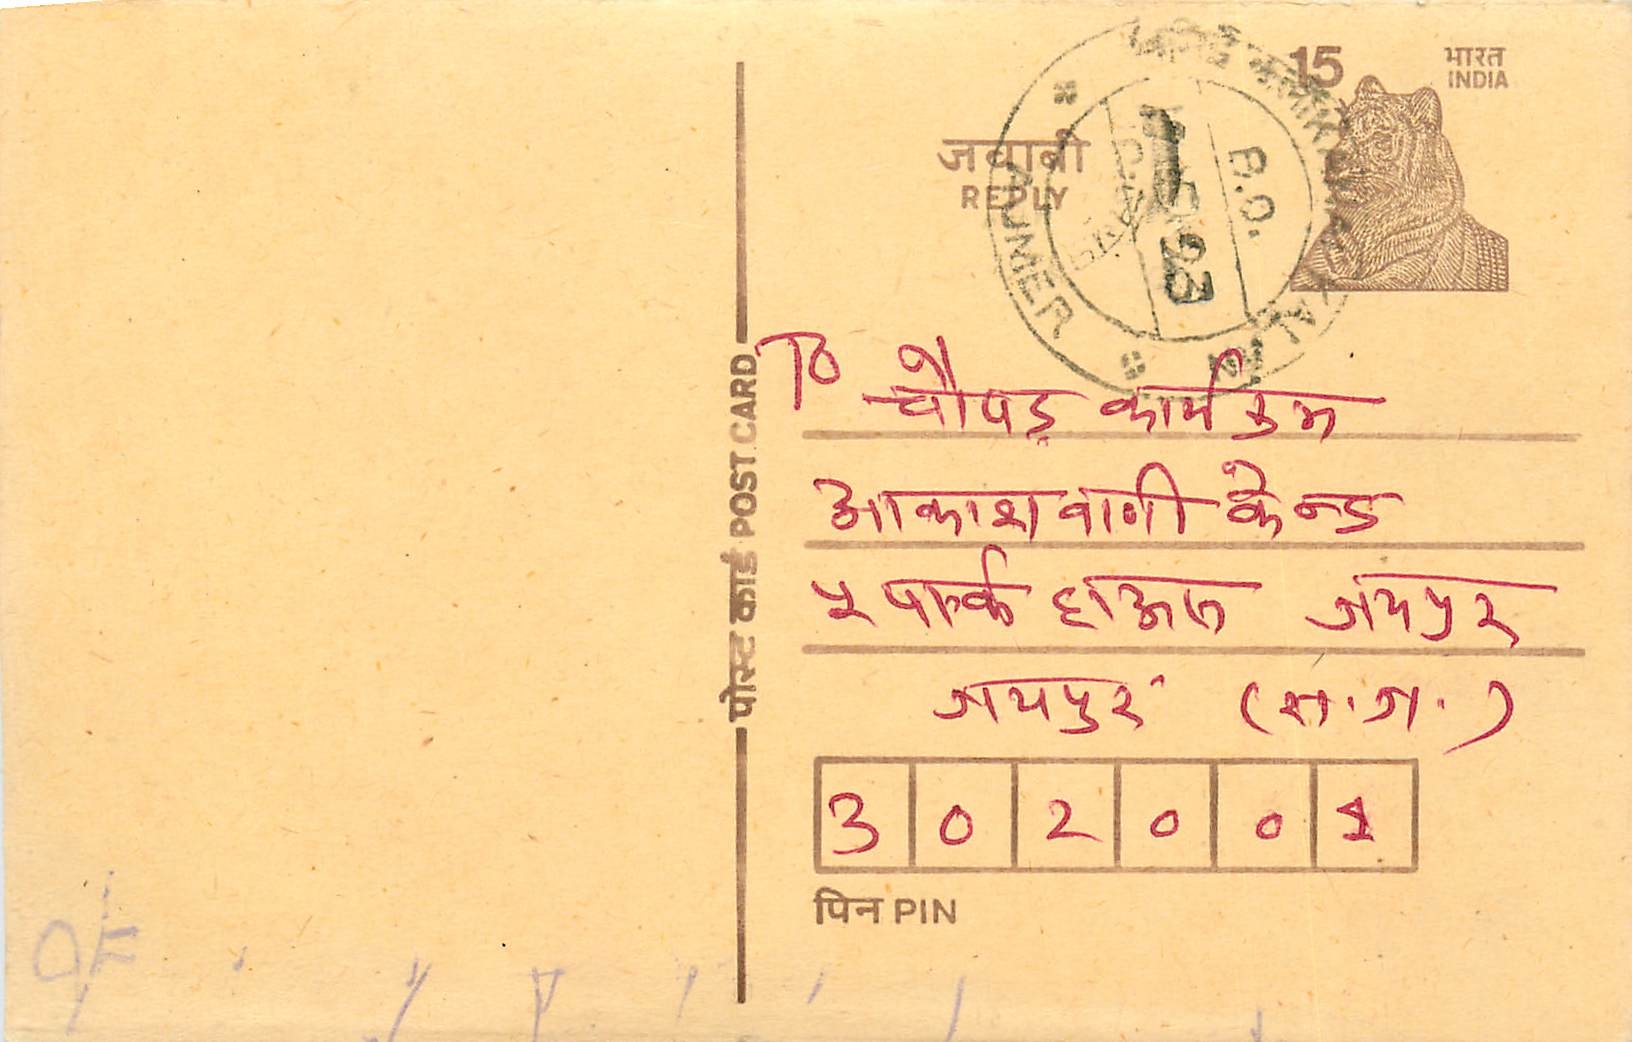 15
भारत
INDIA
जवाबी
REPLY
B.O.
93
AJMER
पोस्ट कार्ड POST CARD
To चौपड़ कार्यक्रम
आकाशवाणी केन्द्र
५ पार्क हाऊस जयपुर
जयपुर (रा.ज.)
3 0 2 0 0 1
पिन PIN